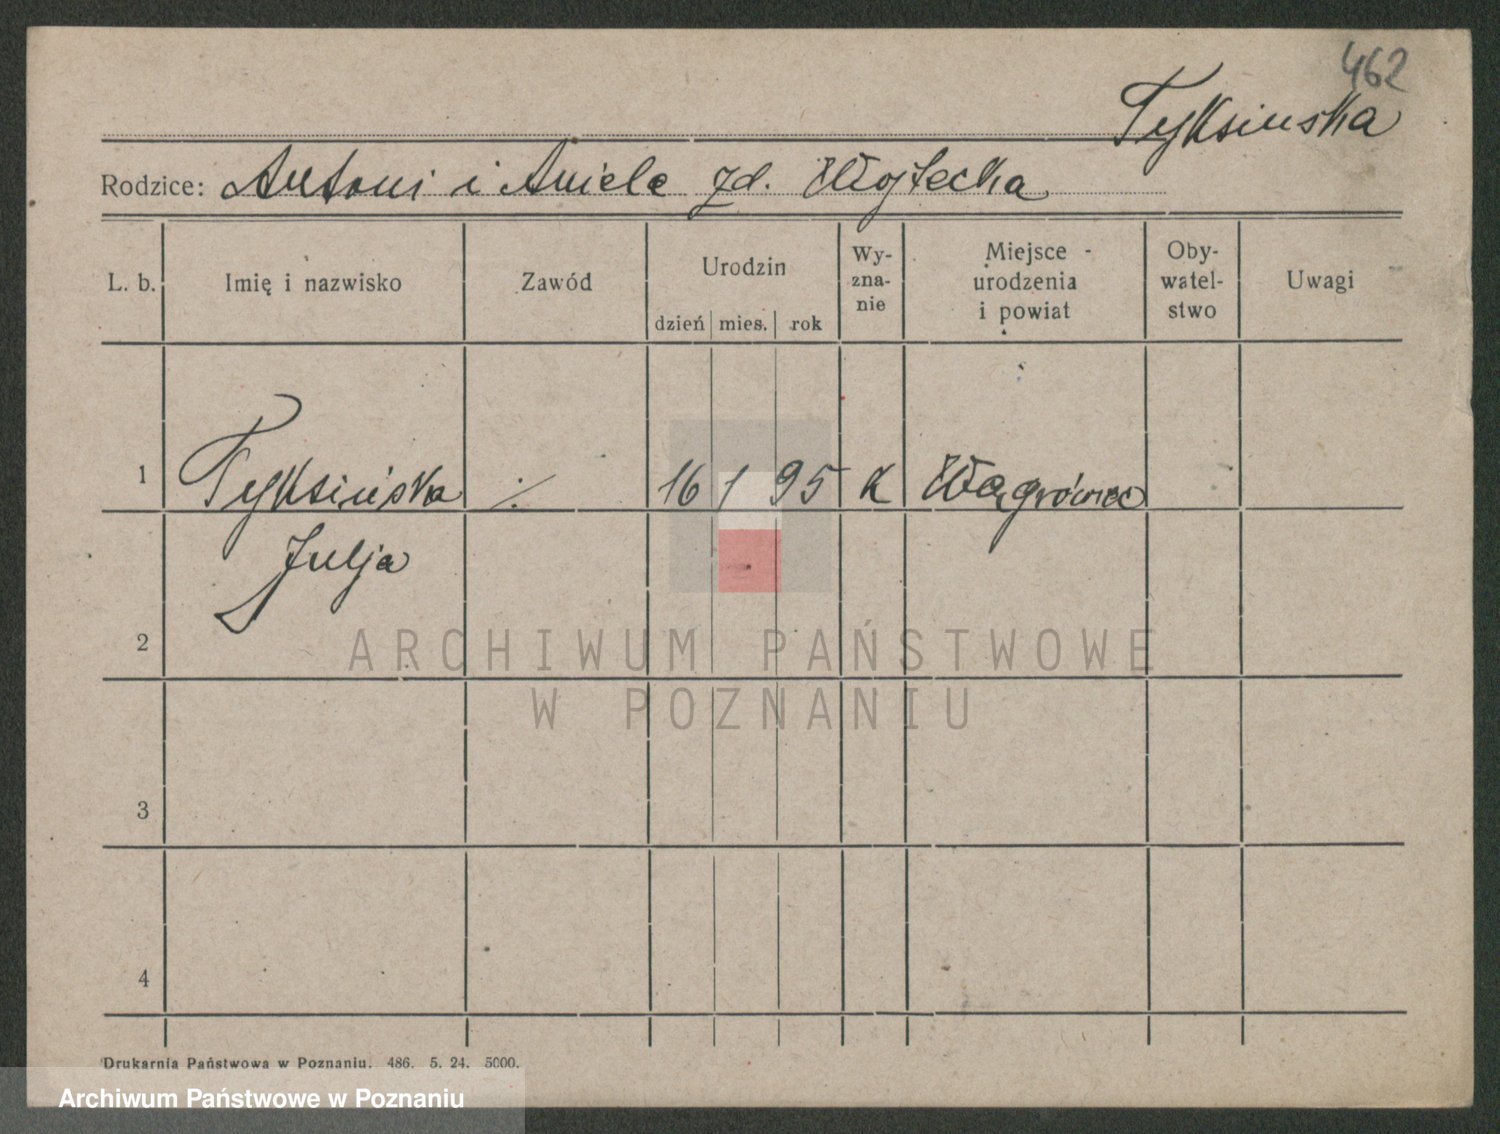 462
Tyksinska
Rodzice: Antoni i Aniela zd. Wojtecka
L. b. Imię i nazwisko Zawód Urodzin Wy- zna- nie Miejsce urodzenia i powiat Oby- watel- stwo Uwagi
dzień mies. rok
1 Tyksińska ·/. 16 1 95 K Wągrówiec
Julja
2
ARCHIWUM PAŃSTWOWE
W POZNANIU
3
4
Drukarnia Państwowa w Poznaniu. 486. 5. 24. 5000.
Archiwum Państwowe w Poznaniu